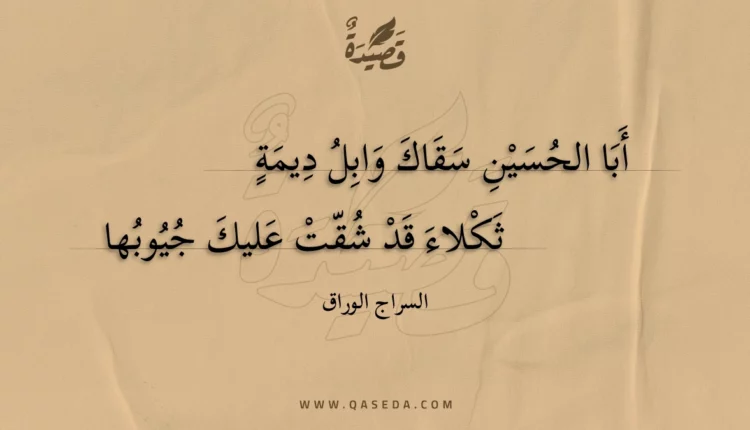 قَصِيدَةٌ
أَبَا الحُسَيْنِ سَقَاكَ وَابِلُ دِيمَةٍ
ثَكْلاءَ قَدْ شُقّتْ عَليكَ جُيُوبُها
السراج الوراق
WWW.QASEDA.COM